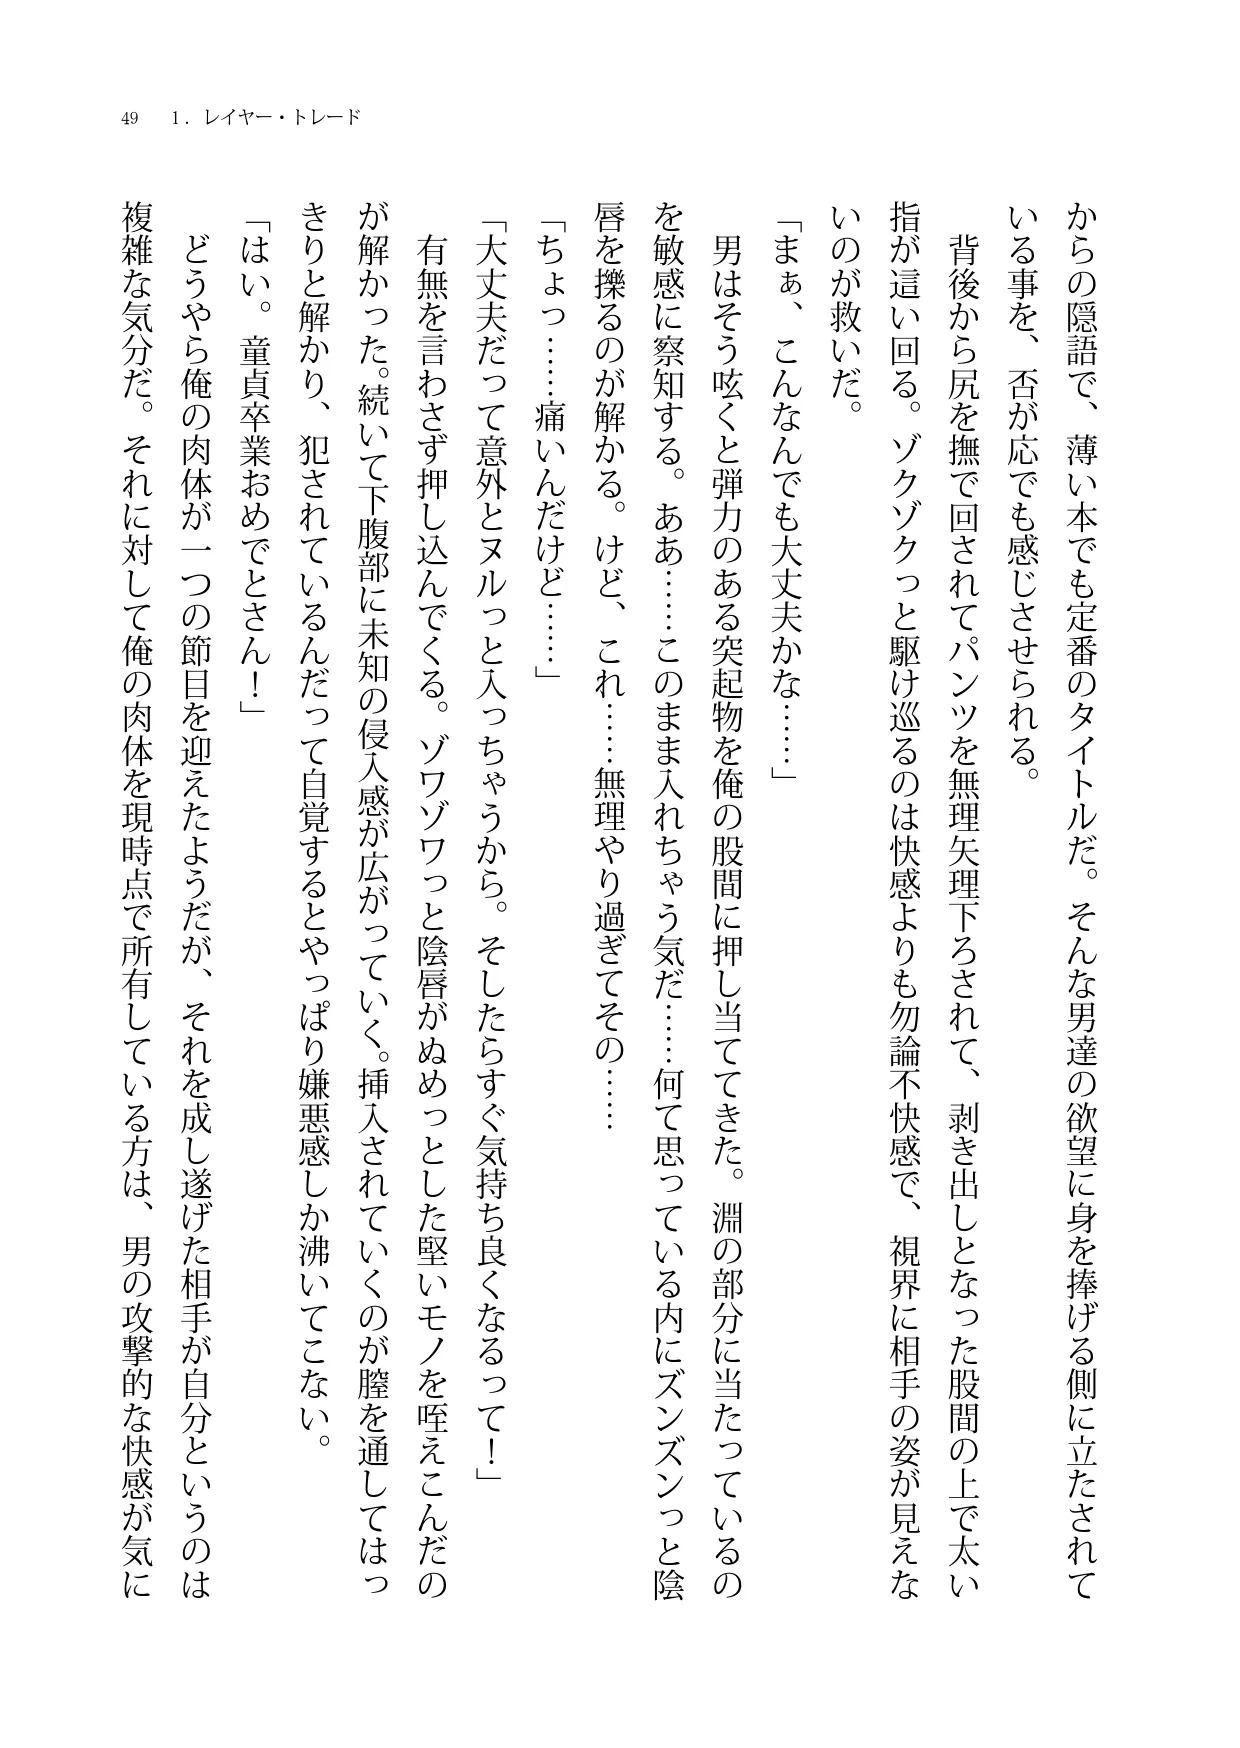 49　1．レイヤー・トレード
からの隠語で、薄い本でも定番のタイトルだ。そんな男達の欲望に身を捧げる側に立たされて
いる事を、否が応でも感じさせられる。
　背後から尻を撫で回されてパンツを無理矢理下ろされて、剥き出しとなった股間の上で太い
指が這い回る。ゾクゾクっと駆け巡るのは快感よりも勿論不快感で、視界に相手の姿が見えな
いのが救いだ。
「まぁ、こんなんでも大丈夫かな……」
　男はそう呟くと弾力のある突起物を俺の股間に押し当ててきた。淵の部分に当たっているの
を敏感に察知する。ああ……このまま入れちゃう気だ……何て思っている内にズンズンっと陰
唇を擽るのが解かる。けど、これ……無理やり過ぎてその……
「ちょっ……痛いんだけど……」
「大丈夫だって意外とヌルっと入っちゃうから。そしたらすぐ気持ち良くなるって！」
　有無を言わさず押し込んでくる。ゾワゾワっと陰唇がぬめっとした堅いモノを咥えこんだの
が解かった。続いて下腹部に未知の侵入感が広がっていく。挿入されていくのが膣を通してはっ
きりと解かり、犯されているんだって自覚するとやっぱり嫌悪感しか沸いてこない。
「はい。童貞卒業おめでとさん！」
　どうやら俺の肉体が一つの節目を迎えたようだが、それを成し遂げた相手が自分というのは
複雑な気分だ。それに対して俺の肉体を現時点で所有している方は、男の攻撃的な快感が気に